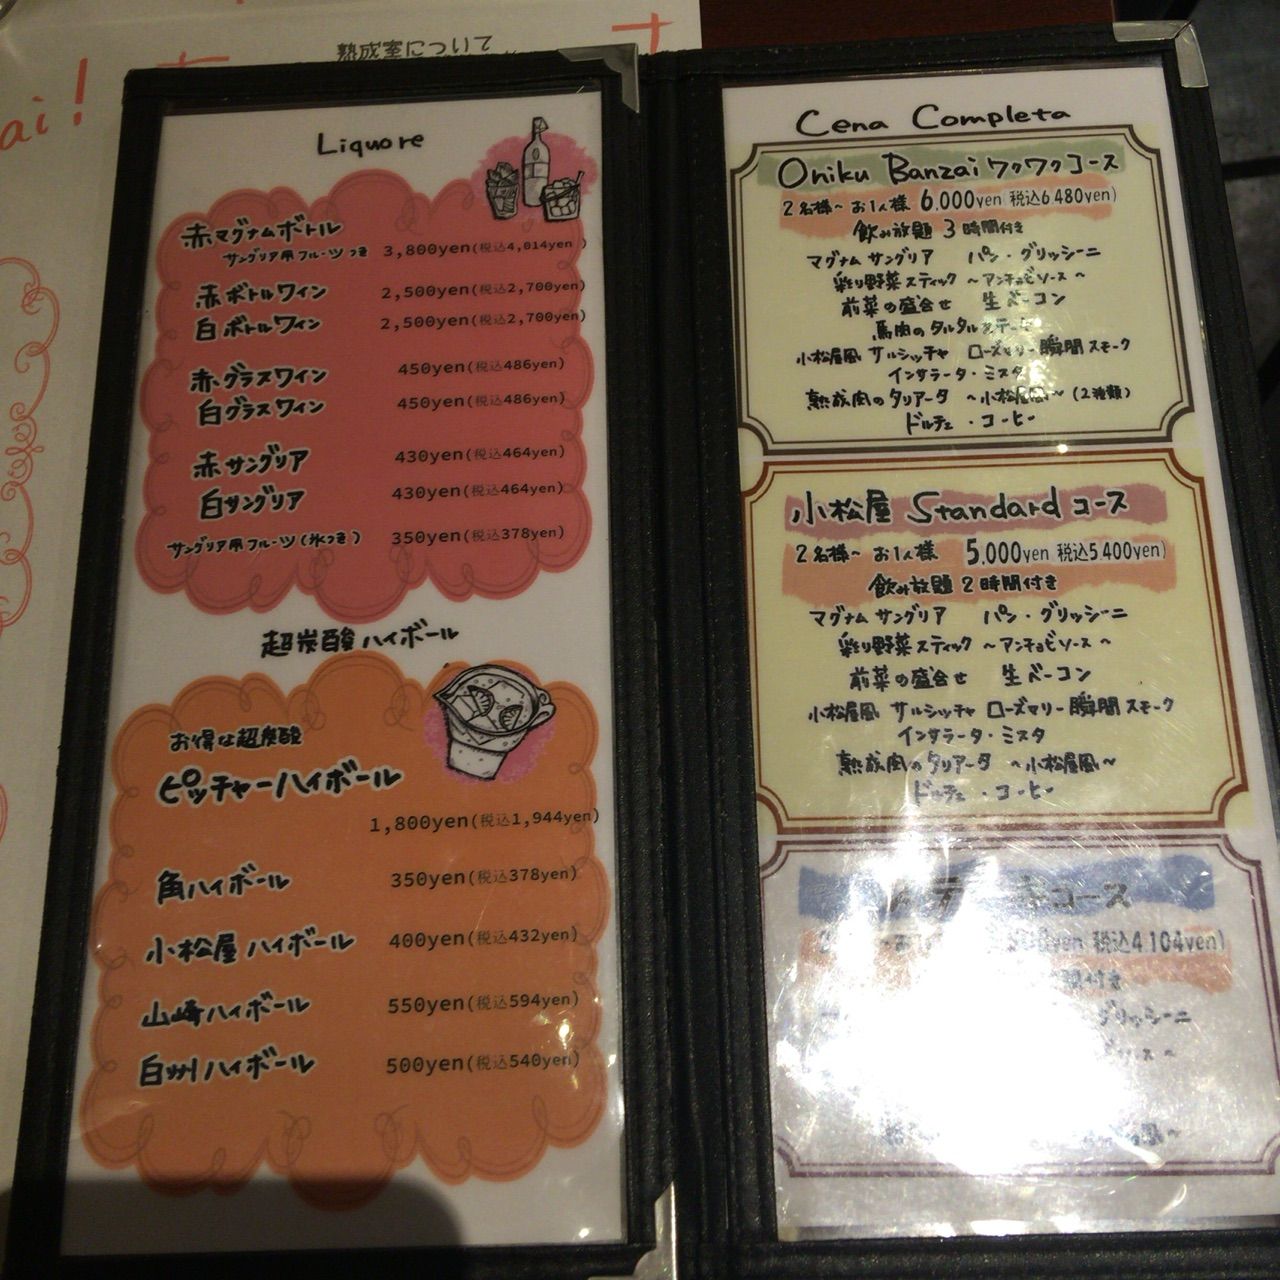 熟成室について
ai!
Liquore
赤マグナムボトル
サングリア用フルーツつき 3,800yen(税込4,014yen)
赤ボトルワイン 2,500yen(税込2,700yen)
白ボトルワイン 2,500yen(税込2,700yen)
赤グラスワイン 450yen(税込486yen)
白グラスワイン 450yen(税込486yen)
赤サングリア 430yen(税込464yen)
白サングリア 430yen(税込464yen)
サングリア用フルーツ(氷つき) 350yen(税込378yen)
超炭酸ハイボール
お得な超炭酸
ピッチャーハイボール
1,800yen(税込1,944yen)
角ハイボール 350yen(税込378yen)
小松屋ハイボール 400yen(税込432yen)
山崎ハイボール 550yen(税込594yen)
白州ハイボール 500yen(税込540yen)
Cena Completa
Oniku Banzai ワクワクコース
2名様~ お1人様 6,000yen 税込6,480yen)
飲み放題 3時間付き
マグナムサングリア パン・グリッシーニ
彩り野菜スティック ~アンチョビソース~
前菜の盛合せ 生ベーコン
馬肉のタルタルステーキ
小松屋風 サルシッチャ ローズマリー瞬間スモーク
インサラータ・ミスタ
熟成肉のタリアータ ~小松屋風~ (2種類)
ドルチェ・コーヒー
小松屋 Standard コース
2名様~ お1人様 5,000yen 税込5,400yen)
飲み放題 2時間付き
マグナムサングリア パン・グリッシーニ
彩り野菜スティック ~アンチョビソース~
前菜の盛合せ 生ベーコン
小松屋風 サルシッチャ ローズマリー瞬間スモーク
インサラータ・ミスタ
熟成肉のタリアータ ~小松屋風~
ドルチェ・コーヒー
コース
yen 税込4,104yen)
付き
グリッシーニ
ソース~